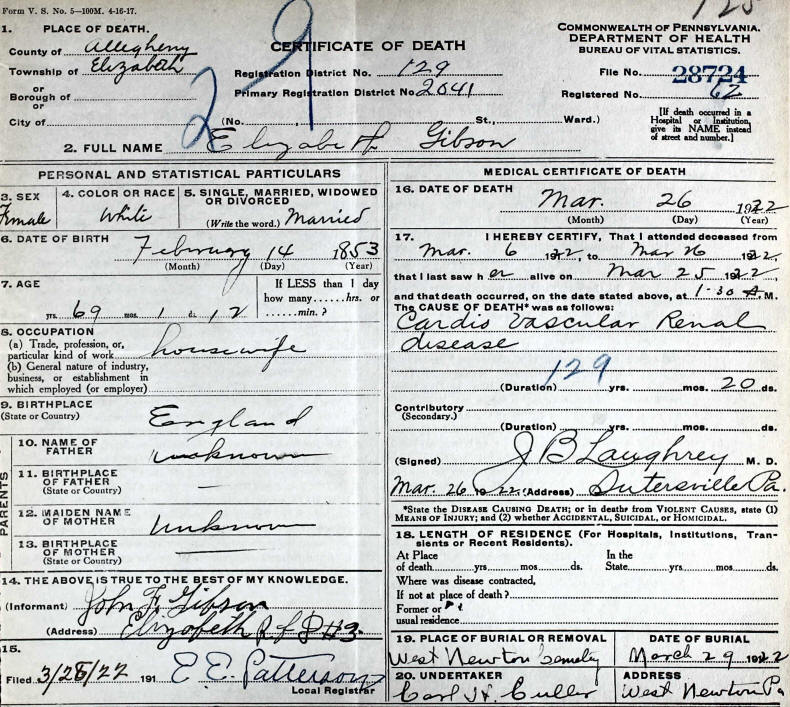 Form V. S. No. 5—100M. 4-16-17.
1. PLACE OF DEATH.
County of Allegheny
Township of Elizabeth
or
Borough of
or
City of
CERTIFICATE OF DEATH
Registration District No. 129
Primary Registration District No. 2041
(No. , St., Ward.)
29
COMMONWEALTH OF PENNSYLVANIA.
DEPARTMENT OF HEALTH
BUREAU OF VITAL STATISTICS.
File No. 28724
Registered No. 62
[If death occurred in a
Hospital or Institution,
give its NAME instead
of street and number.]
2. FULL NAME Elizabeth Gibson
PERSONAL AND STATISTICAL PARTICULARS
3. SEX
Female
4. COLOR OR RACE
White
5. SINGLE, MARRIED, WIDOWED
OR DIVORCED
(Write the word.) Married
6. DATE OF BIRTH
February 14 1853
(Month) (Day) (Year)
7. AGE
yrs. 69 mos. 1 ds. 12
If LESS than 1 day
how many......hrs. or
......min. ?
8. OCCUPATION
(a) Trade, profession, or,
particular kind of work housewife
(b) General nature of industry,
business, or establishment in
which employed (or employer)
9. BIRTHPLACE
(State or Country) England
PARENTS
10. NAME OF
FATHER unknown
11. BIRTHPLACE
OF FATHER —
(State or Country)
12. MAIDEN NAME
OF MOTHER Unknown
13. BIRTHPLACE
OF MOTHER —
(State or Country)
14. THE ABOVE IS TRUE TO THE BEST OF MY KNOWLEDGE.
(Informant) John F. Gibson
(Address) Elizabeth R.F.D #3.
15.
Filed 3/28/22 191 E. E. Patterson
Local Registrar
MEDICAL CERTIFICATE OF DEATH
16. DATE OF DEATH
Mar. 26 1922
(Month) (Day) (Year)
17. I HEREBY CERTIFY, That I attended deceased from
Mar. 6 1922, to Mar 26 1922,
that I last saw her alive on Mar 25 1922,
and that death occurred, on the date stated above, at 1-30 A.M.
The CAUSE OF DEATH* was as follows:
Cardio Vascular Renal
disease
129
(Duration) yrs. mos. 20 ds.
Contributory
(Secondary.)
(Duration) yrs. mos. ds.
(Signed) J B Laughrey M. D.
Mar. 26 1922 (Address) Sutersville Pa.
*State the DISEASE CAUSING DEATH; or in deaths from VIOLENT CAUSES, state (1)
MEANS OF INJURY; and (2) whether ACCIDENTAL, SUICIDAL, or HOMICIDAL.
18. LENGTH OF RESIDENCE (For Hospitals, Institutions, Tran-
sients or Recent Residents).
At Place In the
of death yrs. mos. ds. State yrs. mos. ds.
Where was disease contracted,
If not at place of death ?
Former or
usual residence
19. PLACE OF BURIAL OR REMOVAL
West Newton Cemetery
DATE OF BURIAL
March 29 1922
20. UNDERTAKER
Carl H. Culler
ADDRESS
West Newton Pa